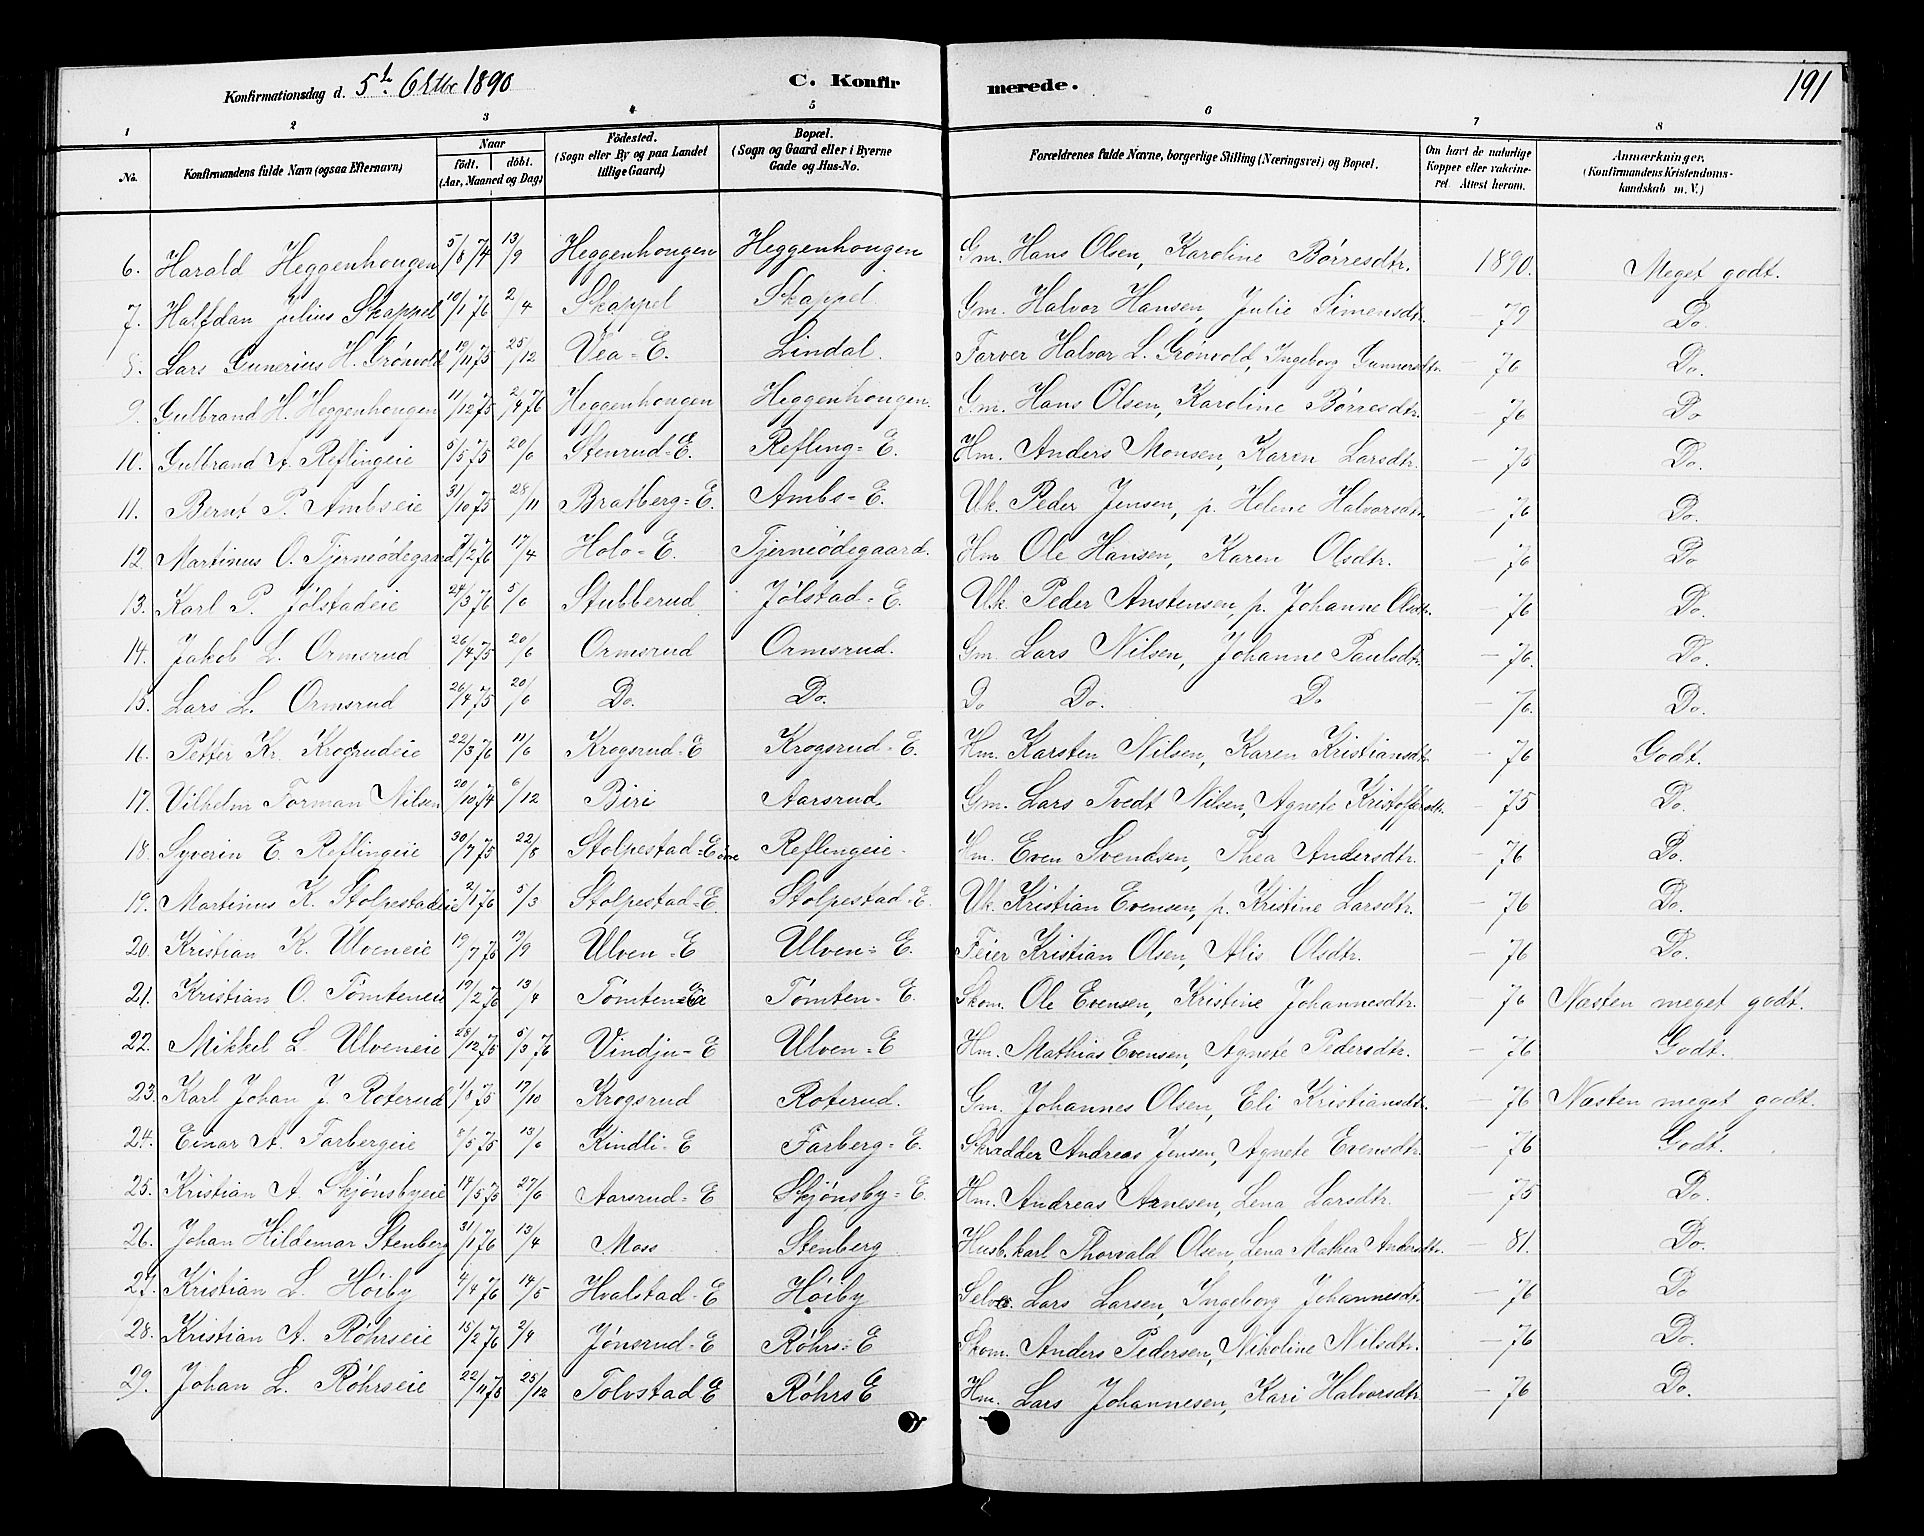 Konfirmationsdag d. 5te Oktbr 1890 C. Konfirmerede. 191
1 2 3 4 5 6 7 8
No. Konfirmandens fulde Navn (ogsaa Efternavn) Naar født. døbt. (Aar, Maaned og Dag) Födested. (Sogn eller By og paa Landet tillige Gaard) Bopæl. (Sogn og Gaard eller i Byerne Gade og Hus-No. Forældrenes fulde Navne, borgerlige Stilling (Næringsvei) og Bopæl. Om havt de naturlige Kopper eller vakcineret Attest herom. Anmærkninger. (Konfirmandens Kristendomskundskab m. V.)
6. Harald Heggenhougen 5/8 74 13/9 Heggenhougen Heggenhougen Gm. Hans Olsen, Karoline Børresdtr. 1890. Meget godt.
7. Halfdan Julius Skappel 10/1 76 2/4 Skappel Skappel. Gm. Halvor Hansen, Julie Simensdtr. - 79 Do.
8. Lars Gunerius H. Grönvold 19/11 75 25/12 Vea-E. Lindal. Farver Halvor L. Grönvold, Ingeborg Gunnersdtr. - 76 Do.
9. Gulbrand H. Heggenhougen 11/12 75 2/4 76 Heggenhougen Heggenhougen. Gm. Hans Olsen, Karoline Børresdtr. - 76 Do
10. Gulbrand A. Reflingeie 5/5 75 20/6 Stenrud-E. Refling-E. Hm. Anders Monsen, Karen Larsdtr. - 75 Do.
11. Bernt P. Ambseie 31/10 75 28/11 Bratberg-E. Ambs-E. Uk. Peder Jensen, p. Helene Halvorsdtr. - 76 Do.
12. Martinus O. Tjerneödegaard 7/2 76 17/4 Holo-E. Tjerneödegaard. Hm Ole Hansen, Karen Olsdtr. - 76 Do
13. Karl P. Jølstadeie 24/3 76 5/6 Stubberud Jølstad-E. Uk. Peder Anstensen, p. Johanne Olsdtr. - 76 Do.
14. Jakob L. Ormsrud 26/4 75 20/6 Ormsrud Ormsrud. Gm. Lars Nilsen, Johanne Paulsdtr. - 76. Do.
15. Lars L. Ormsrud 26/4 75 20/6 Do. Do. Do Do. Do - 76. Do.
16. Petter Kr. Krogsrudeie 22/3 76 11/6 Krogsrud-E Krogsrud-E. Hm. Karsten Nilsen, Karen Kristiansdtr. - 76 Godt.
17. Vilhelm Torman Nilsen 20/10 74 6/12 Biri Aarsrud. Gm. Lars Tvedt Nilsen, Agnete Kristoffersdtr. - 75 Do.
18. Syverin E. Reflingeie 30/7 75 22/8 Stolpestad-E Reflingeie. Hm. Even Svendsen, Thea Andersdtr. - 76 Do.
19. Martinus K. Stolpestadeie 2/1 76 5/3 Stolpestad-E. Stolpestad-E. Uk. Kristian Evensen, p. Kristine Larsdtr. - 76 Do.
20. Kristian K. Ulveneie 19/7 75 19/9 Ulven-E Ulven-E. Feier Kristian Olsen, Alis Olsdtr. - 76 Do.
21. Kristian O. Tömteneie 19/2 76 13/4 Tömten-E Tömten-E. Skom. Ole Evensen, Kristine Johannesdtr. 76 Næsten meget godt.
22. Mikkel L Ulveneie 28/12 75 5/3 76 Vindju-E Ulven-E Hm. Mathias Evensen, Agnete Pedersdtr. - 76 Godt.
23. Karl Johan J. Roterud 1/8 75 17/10 Krogsrud Roterud. Gm. Johannes Olsen, Eli Kristiansdtr. - 76 Næsten meget godt.
24. Einar A. Farbergeie 8/5 75 13/6 Kindli-E Farberg-E. Skrædder Andreas Jensen, Agnete Evensdtr. - 76 Godt.
25. Kristian A. Skjønsbyeie 14/5 75 27/6 Aarsrud-E Skjønsby-E. Hm. Andreas Arnesen, Lena Larsdtr. - 75 Do.
26. Johan Hildemar Stenberg 31/1 76 13/4 Moss Stenberg Husb.karl Thorvald Olsen, Lena Mathea Andersdtr. - 81. Do.
27. Kristian L. Høiby 4/4 76 14/5 Hvalstad-E Høiby Selve. Lars Larsen, Ingeborg Johannesdtr. - 76 Do
28. Kristian A. Røhrseie 15/2 76 2/4 Jønsrud-E Røhrs-E Skom. Anders Pedersen, Nikoline Nilsdtr. - 76 Do.
29. Johan L. Røhrseie 22/11 75 25/12 Tolvstad E Røhrs E Hm. Lars Johannesen, Kari Halvorsdtr. - 76 Do.